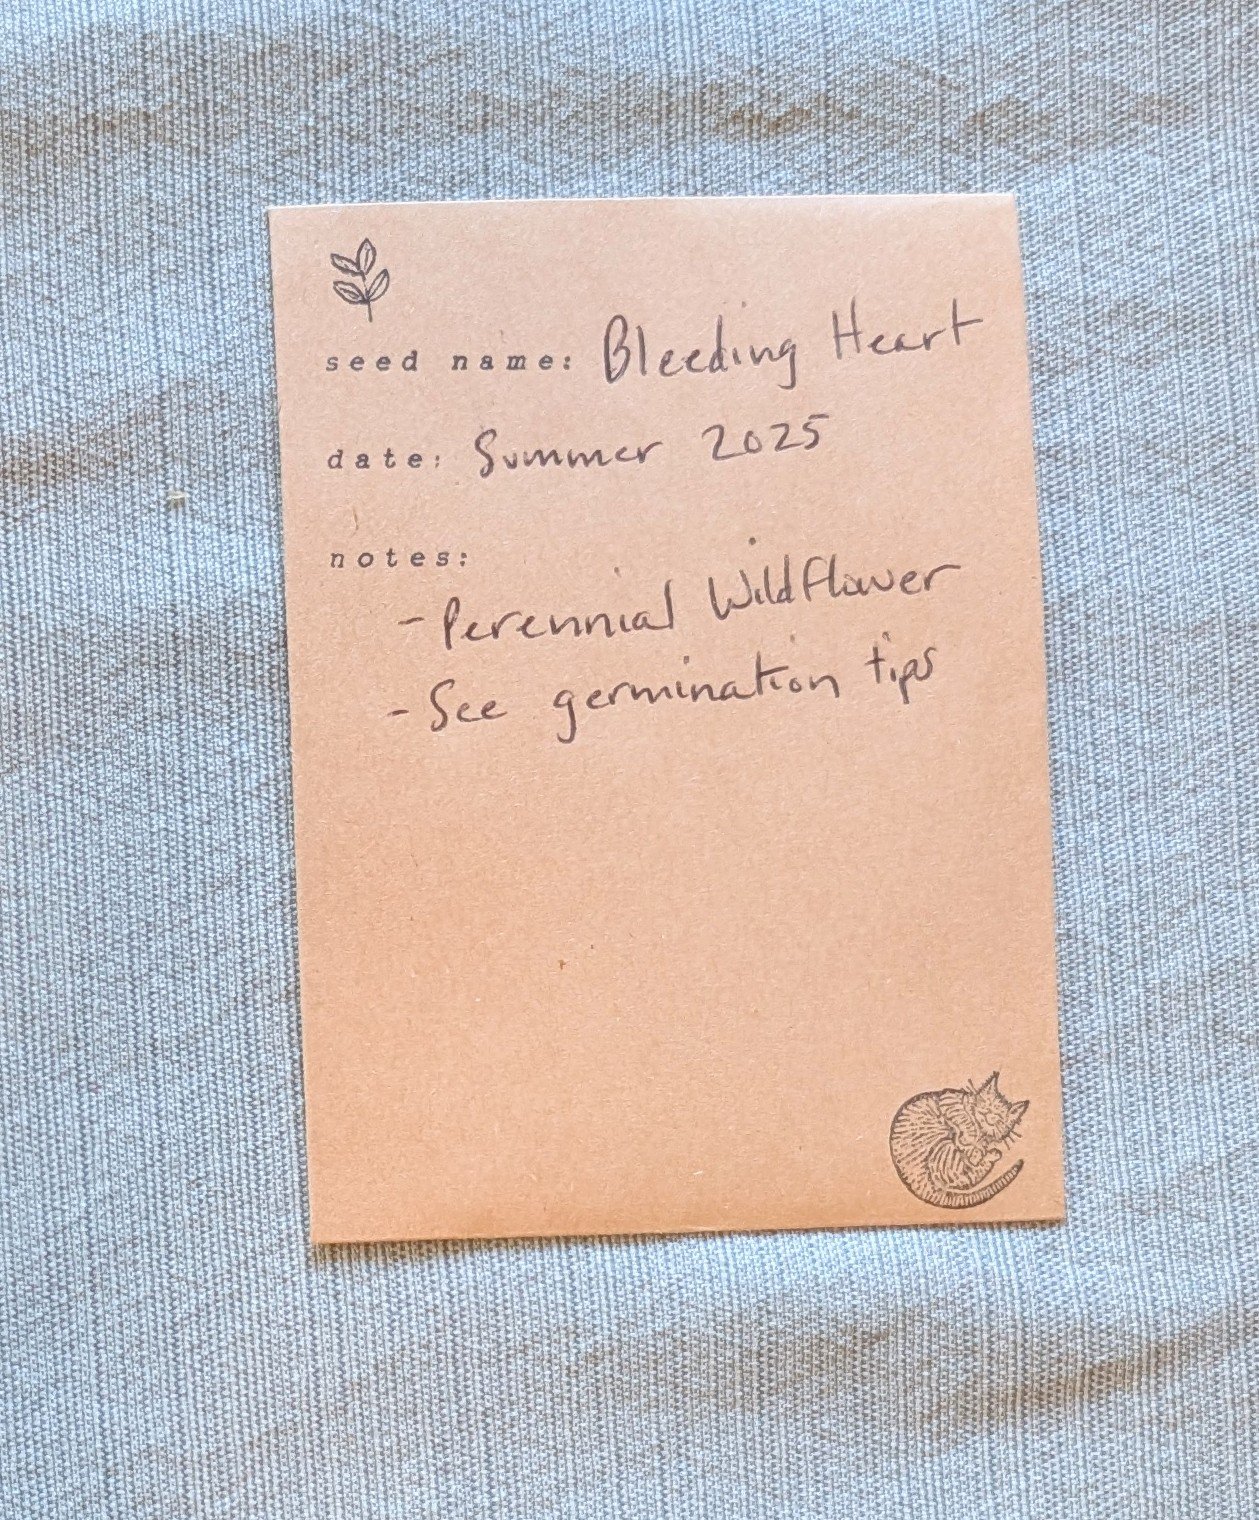 seed name: Bleeding Heart
date: Summer 2025
notes:
- Perennial Wildflower
- See germination tips